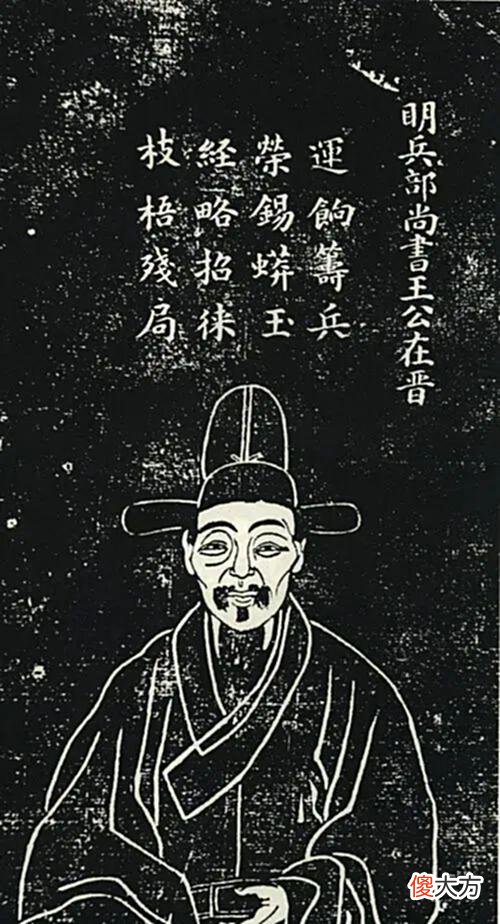 明兵部尚書王公在晋
運餉籌兵
榮錫蟒玉
経略招徕
枝梧殘局
傻大方